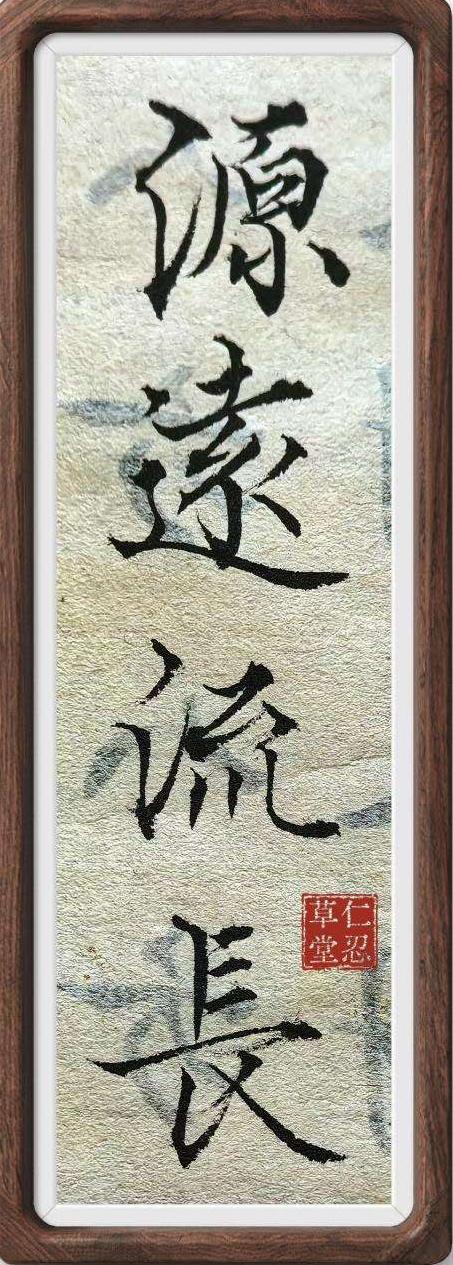 源遠流長
仁忍
草堂